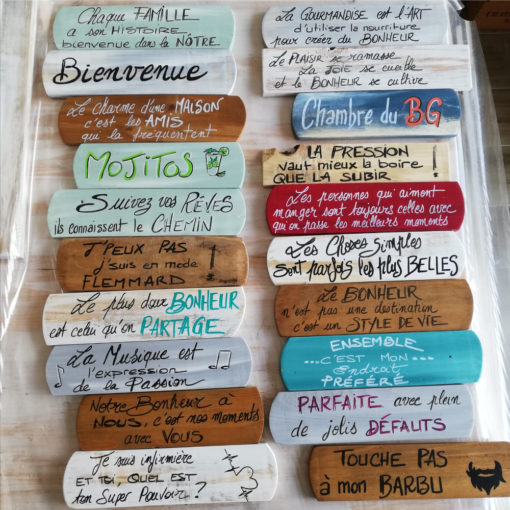 Chaque FAMILLE
a son HISTOIRE
bienvenue dans la NÔTRE
Bienvenue
Le charme d'une MAISON
c'est les AMIS
qui la fréquentent
MOJITOS
Suivez vos RÊVES
ils connaissent le CHEMIN
J'PEUX PAS
j'suis en mode
FLEMMARD !
Le plus doux BONHEUR
est celui qu'on PARTAGE
La Musique est
l'expression
de la Passion
Notre Bonheur à
NOUS, c'est nos moments
avec VOUS
Je suis infirmière
ET TOI, QUEL EST
ton Super Pouvoir ?
La GOURMANDISE est l'ART
d'utiliser la nourriture
pour créer du BONHEUR
Le PLAISIR se ramasse
La JOIE se cueille
et le BONHEUR se cultive
Chambre du BG
LA PRESSION
vaut mieux la boire
QUE LA SUBIR !
Les personnes qui aiment
manger sont toujours celles avec
qui on passe les meilleurs moments
Les Choses Simples
sont parfois les plus BELLES
Le BONHEUR
n'est pas une destination
c'est un STYLE DE VIE
ENSEMBLE
...C'EST MON...
Endroit
PRÉFÉRÉ
PARFAITE avec plein
de jolis DÉFAUTS
TOUCHE PAS
à mon BARBU